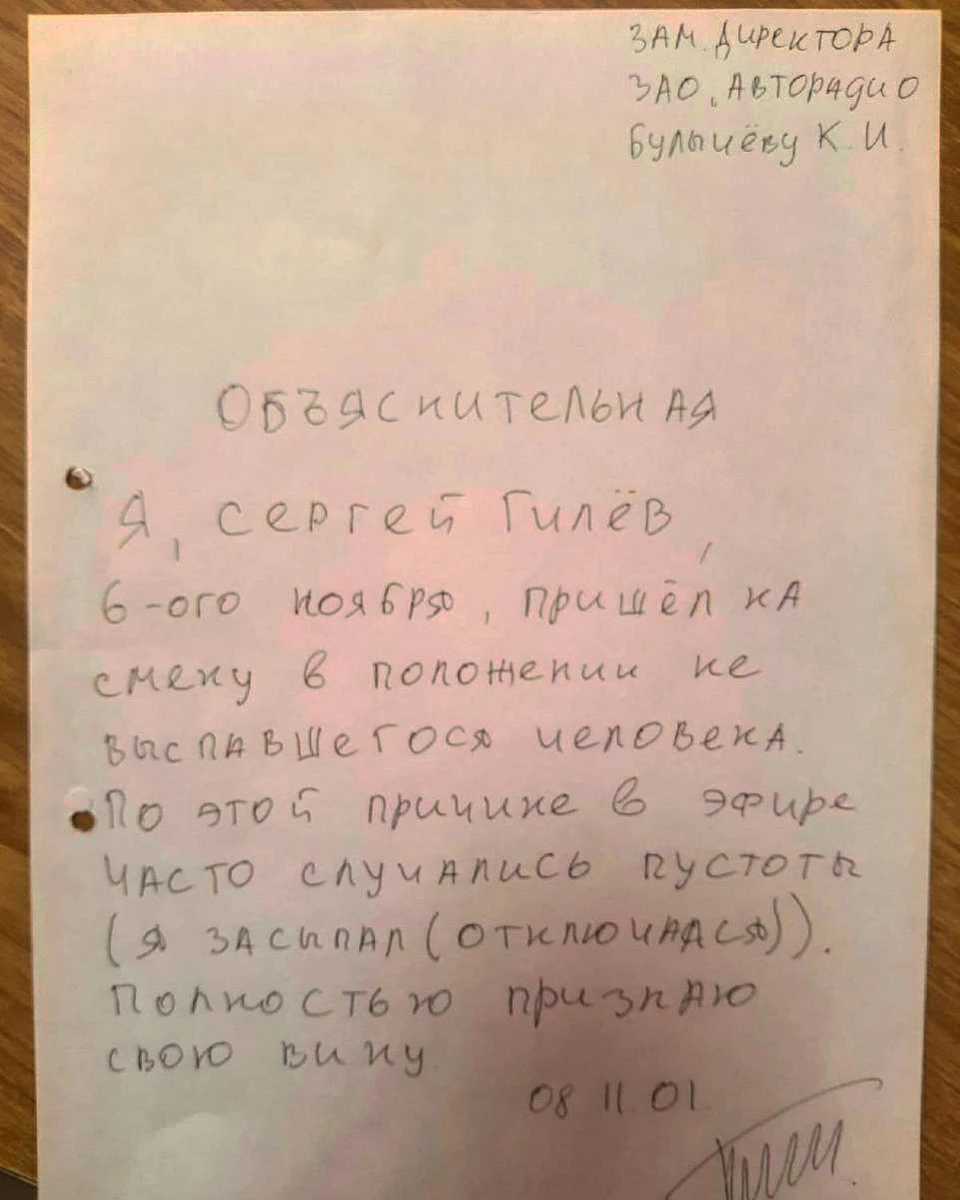 ЗАМ. ДИРЕКТОРА
ЗАО „АВТОРАДИО
БУЛЫЧЁВУ К. И.
ОБЪЯСНИТЕЛЬНАЯ
Я, СЕРГЕЙ ГИЛЁВ,
6-ого ноября, пришёл на
смену в положении не
выспавшегося человека.
По этой причине в эфире
часто случались пустоты
(я засыпал (отключался)).
Полностью признаю
свою вину.
08 11 01.